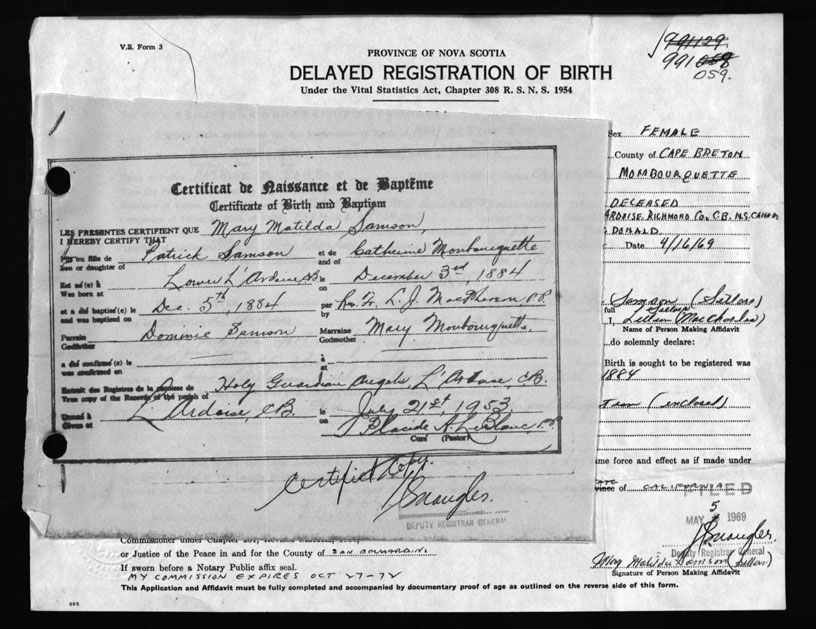 V.S. Form 3
PROVINCE OF NOVA SCOTIA
DELAYED REGISTRATION OF BIRTH
Under the Vital Statistics Act, Chapter 308 R. S. N. S. 1954
991129
991058
059.
Sex FEMALE
County of CAPE BRETON
MOMBOURQUETTE
DECEASED
ARDOISE. RICHMOND CO. C.B. N.S.
DONALD.
Date 4/16/69
Samson (Sellers)
full
I,
Name of Person Making Affidavit
do solemnly declare:
Birth is sought to be registered was
1884
(enclosed)
me force and effect as if made under
of CALIFORNIA
FILED
MAY 5 1969
Deputy Registrar General
Mary Matilda Samson
Signature of Person Making Affidavit
Certificat de Naissance et de Baptême
Certificate of Birth and Baptism
LES PRESENTES CERTIFIENT QUE
I HEREBY CERTIFY THAT
Mary Matilda Samson,
Fils ou fille de
Son or daughter of
Patrick Samson
et de
and of
Catherine Monbourquette
Est né(e) à
Was born at
Lower L'Ardoise, CB
le
on
December 3rd, 1884
et a été baptisé(e) le
and was baptised on
Dec. 5th, 1884
par
by
L. J. MacPherson P.P.
Parrain
Godfather
Dominic Samson
Marraine
Godmother
Mary Monbourquette.
a été confirmé(e) le
was confirmed on
à
at
Extrait des Registres de la paroisse de
True copy of the Records of the parish of
Holy Guardian Angels, L'Ardoise, CB.
Donné à
Given at
L'Ardoise, CB.
le
on
July 21st, 1953
A. LeBlanc, P.P.
Curé (Pastor)
Certified Copy.
DEPUTY REGISTRAR GENERAL
or Justice of the Peace in and for the County of SAN BERNARDINO
If sworn before a Notary Public affix seal.
MY COMMISSION EXPIRES OCT 27-72
This Application and Affidavit must be fully completed and accompanied by documentary proof of age as outlined on the reverse side of this form.